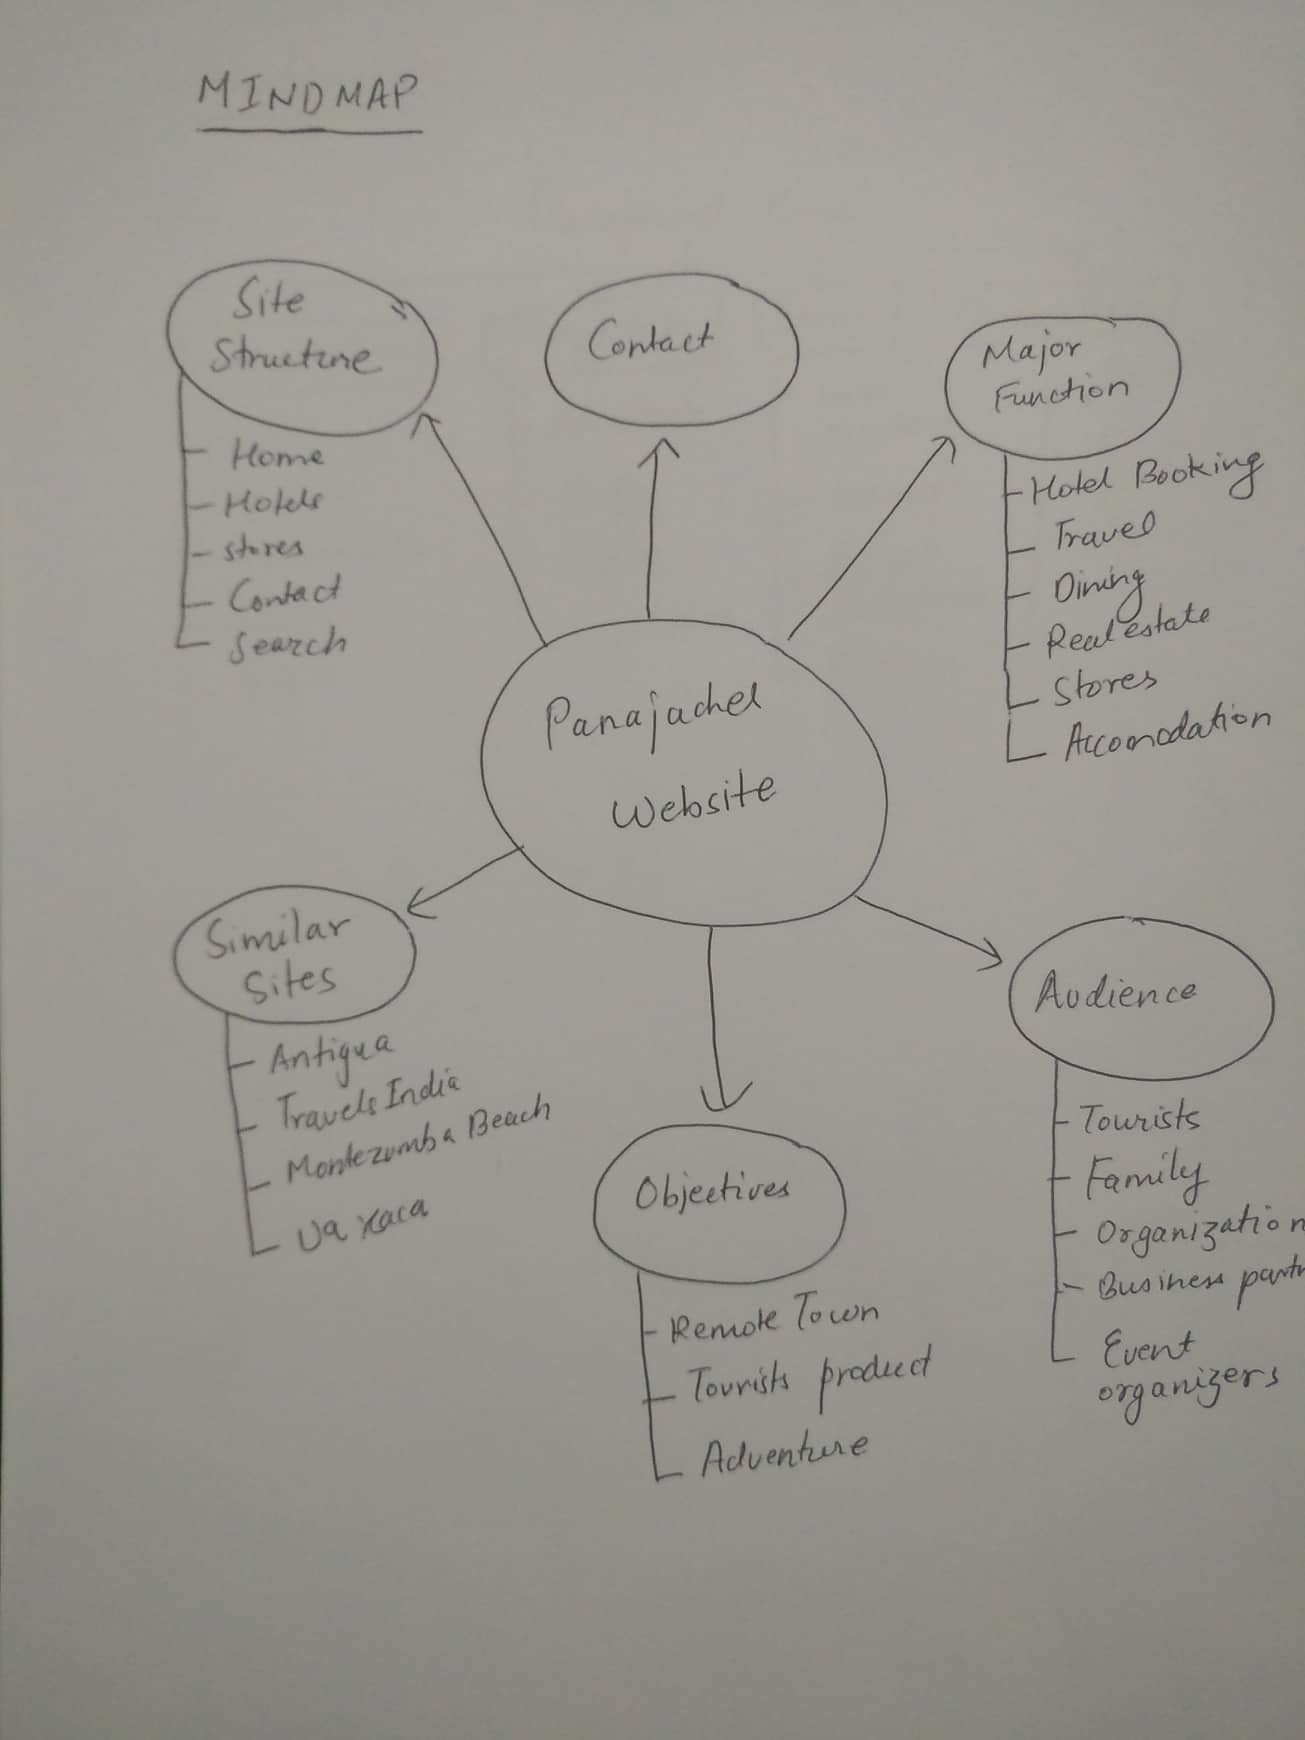 MINDMAP
Site
Structure
Home
Hotels
stores
Contact
Search
Contact
Major
Function
Hotel Booking
Travel
Dining
Real estate
Stores
Accomodation
Panajachel
Website
Similar
Sites
Antigua
Travels India
Montezumba Beach
Uaxaca
Objectives
Remote Town
Tourists product
Adventure
Audience
Tourists
Family
Organization
Business partn
Event
organizers